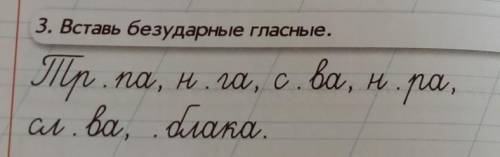 3. Вставь безударные гласные.
Тр . па, н . га, с . ва, н . ра,
сл . ва, . блака.